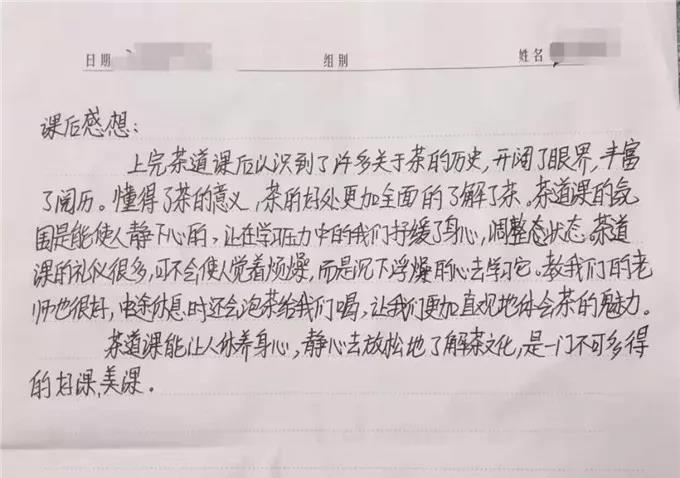 日期 组别 姓名
课后感想：
上完茶道课后认识到了许多关于茶的历史，开阔了眼界，丰富
了阅历。懂得了茶的意义，茶的好处更加全面的了解了茶。茶道课的氛
围是能使人静下心的，让在学习压力中的我们抒缓了身心，调整态状态。茶道
课的礼仪很多，可不会使人觉着烦燥，而是沉下浮燥的心去学习它。教我们的老
师也很好，中途休息时还会泡茶给我们喝，让我们更加直观地体会茶的魅力。
茶道课能让人休养身心，静心去放松地了解茶文化，是一门不可多得
的好课，美课。